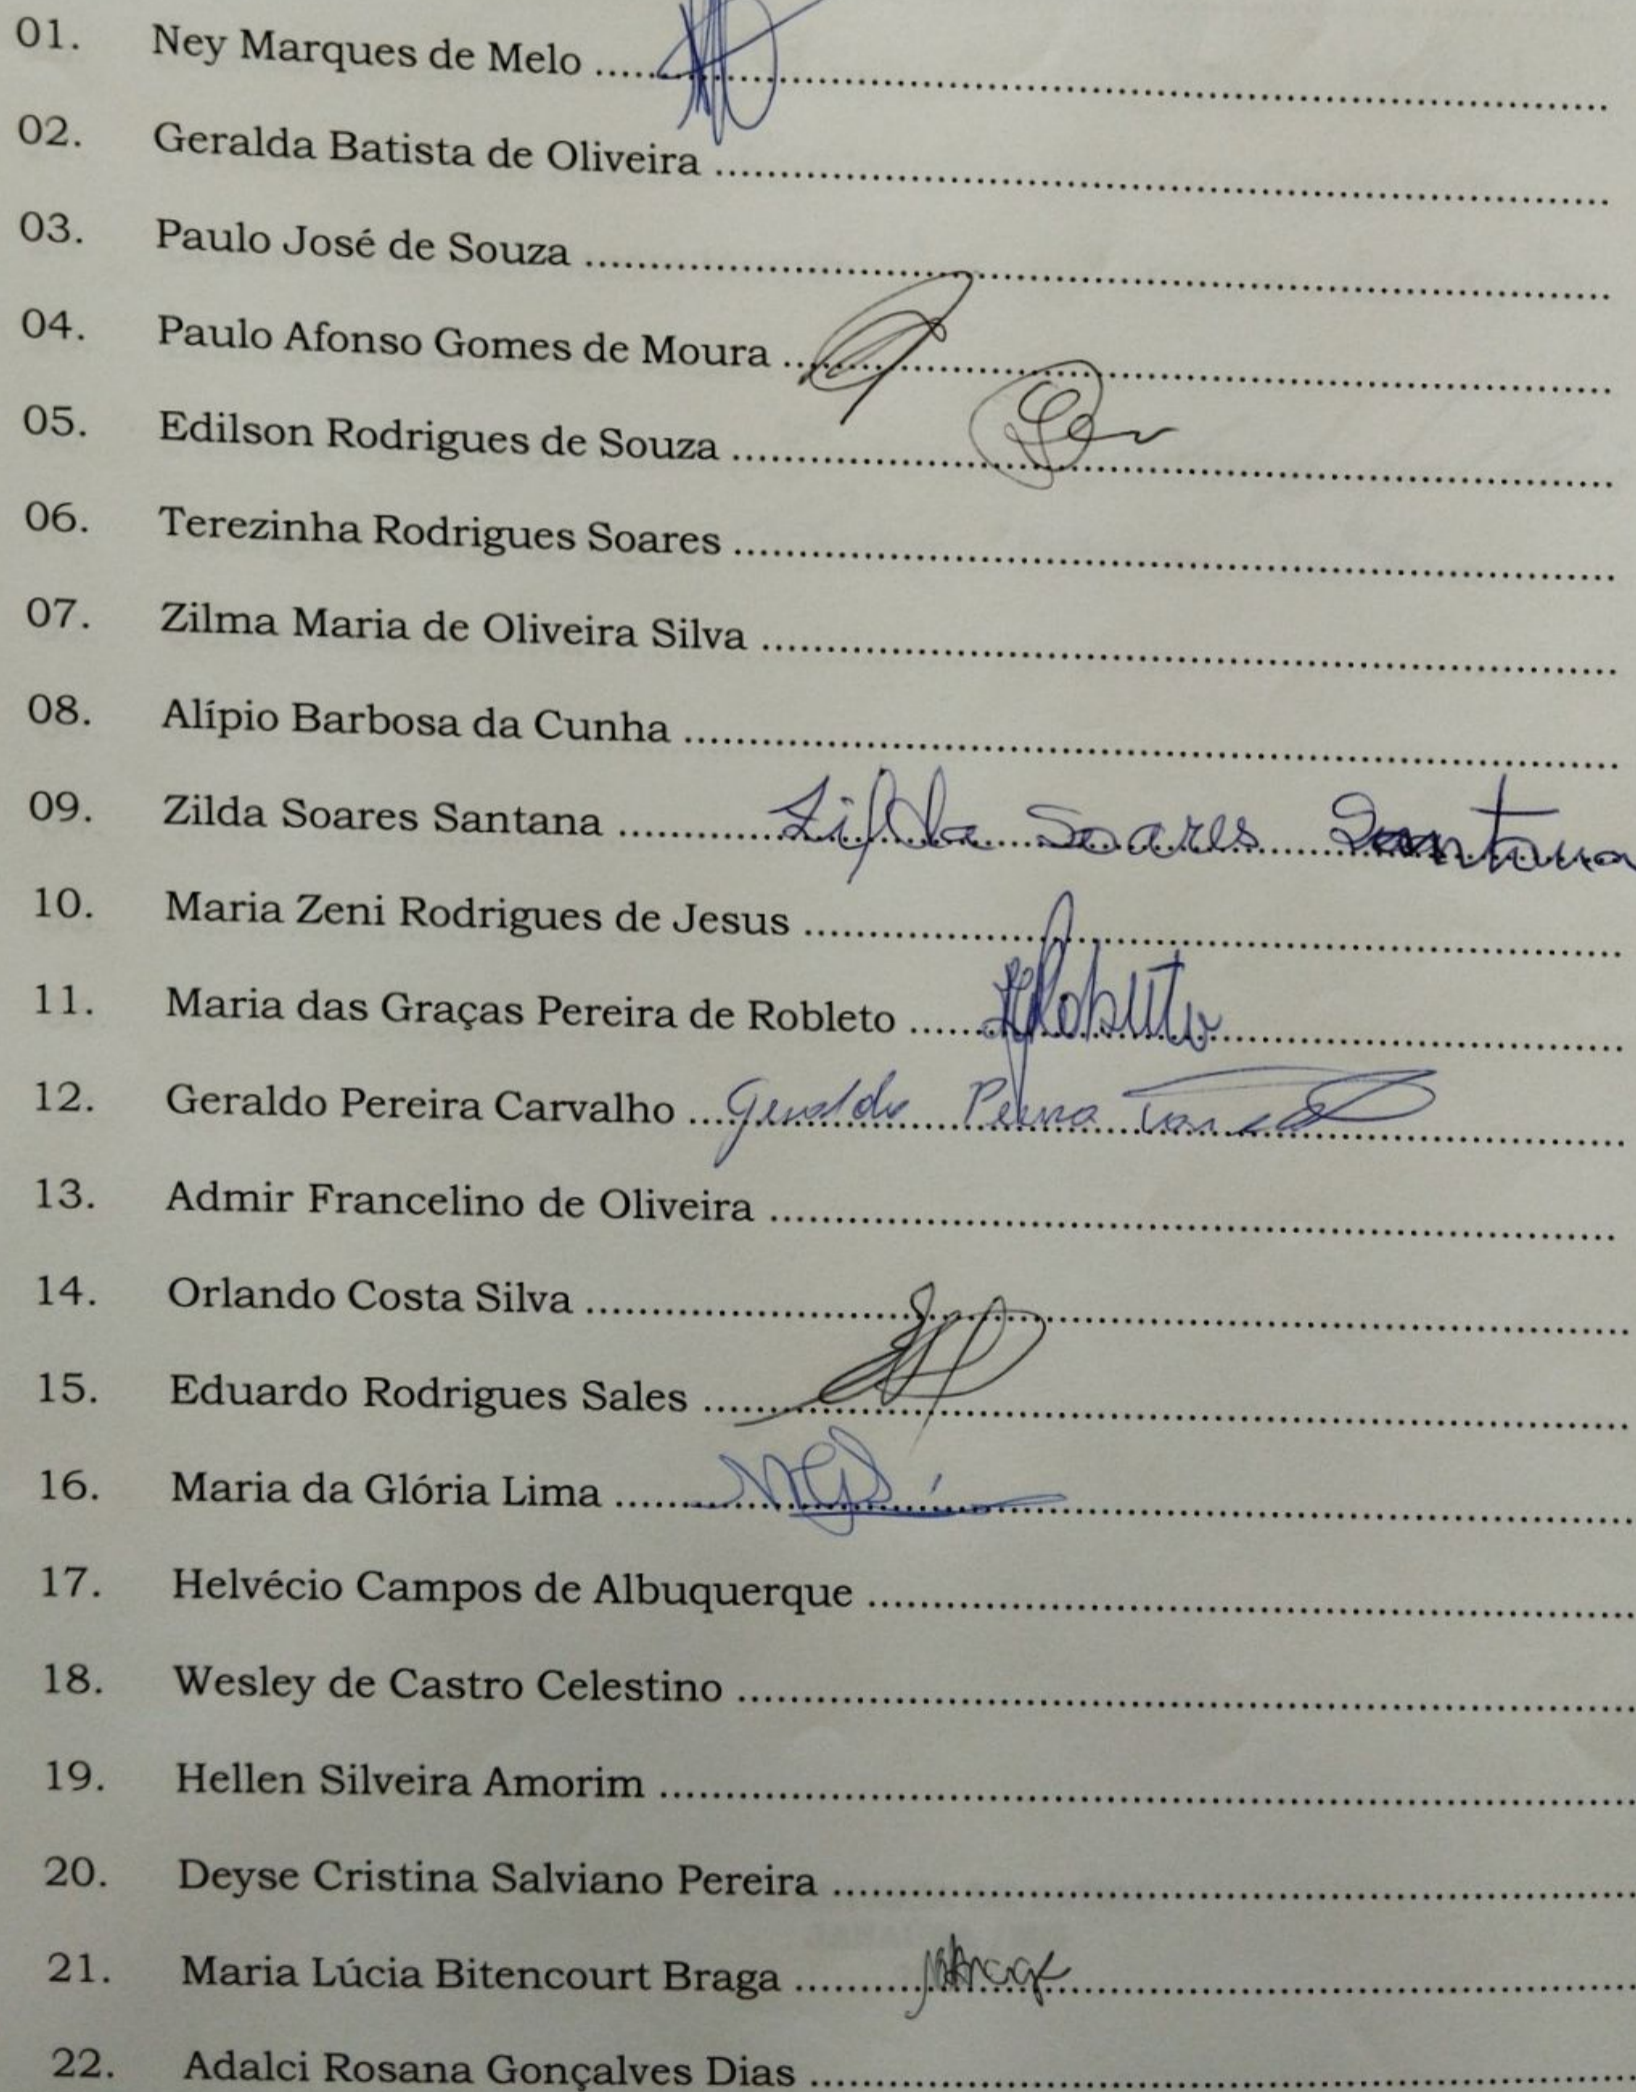 01. Ney Marques de Melo ..........
02. Geralda Batista de Oliveira ..........
03. Paulo José de Souza ..........
04. Paulo Afonso Gomes de Moura ..........
05. Edilson Rodrigues de Souza ..........
06. Terezinha Rodrigues Soares ..........
07. Zilma Maria de Oliveira Silva ..........
08. Alípio Barbosa da Cunha ..........
09. Zilda Soares Santana .......... Zilda Soares Santana
10. Maria Zeni Rodrigues de Jesus ..........
11. Maria das Graças Pereira de Robleto .......... Robleto
12. Geraldo Pereira Carvalho .......... Geraldo Pereira
13. Admir Francelino de Oliveira ..........
14. Orlando Costa Silva ..........
15. Eduardo Rodrigues Sales ..........
16. Maria da Glória Lima ..........
17. Helvécio Campos de Albuquerque ..........
18. Wesley de Castro Celestino ..........
19. Hellen Silveira Amorim ..........
20. Deyse Cristina Salviano Pereira ..........
21. Maria Lúcia Bitencourt Braga ..........
22. Adalci Rosana Gonçalves Dias ..........